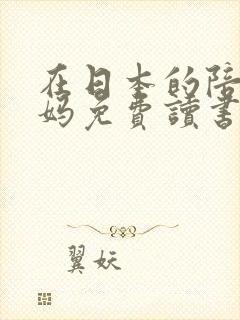 在日本的陪
妈免費讀書
翼妖